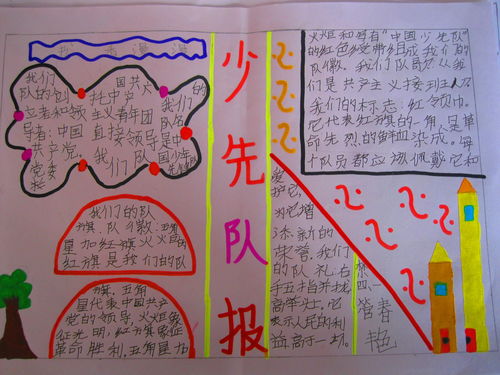 我们
队的创
立者和领
导者:中国
共产党。
党委
国共大
托中产
主义青年团
直接领导
我们队
我们的
是中
我们的队
旗、队徽:五角
星加红旗火火
红旗是我们的队
旗,五角
星代表中国共产
党的领导,火炬象
征光明,红旗象征
革命胜利,五角星加
少先队报
火炬和写有“中国少先队”
的红色绶带组成我们的
队徽。我们队员
们是共产主义接班人
我们的标志:红领巾。
它代表红旗的一角,是革
命先烈的鲜血染成。每
个队员都应该佩戴它和
爱
护它
为它增
添新的
荣誉。我们
的队礼:右
手五指并拢
高举头上,它
表示人民的利
益高于一切。
四一
管春
艳